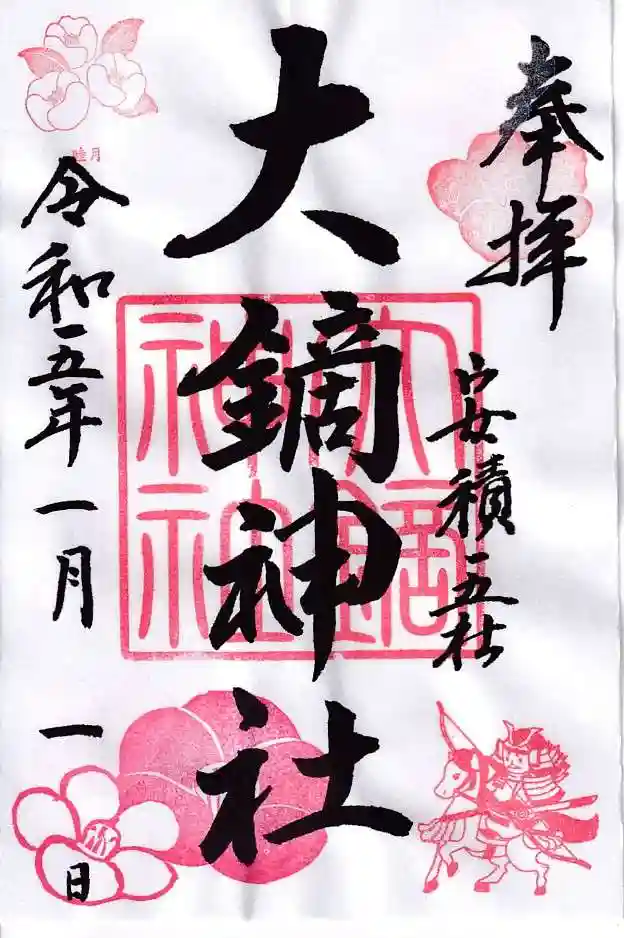 奉拝
安積五社
大鏑神社
大鏑神社
睦月
令和五年一月一日